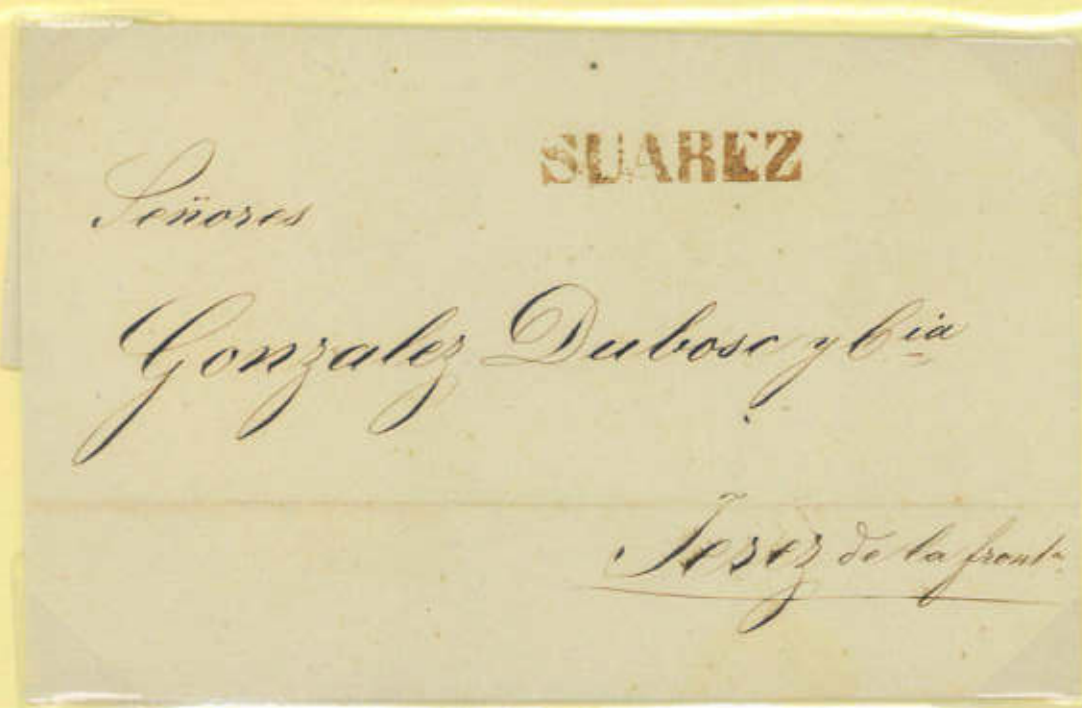 SUAREZ
Señores
Gonzalez Dubosc y Cia
Jerez de la front.a